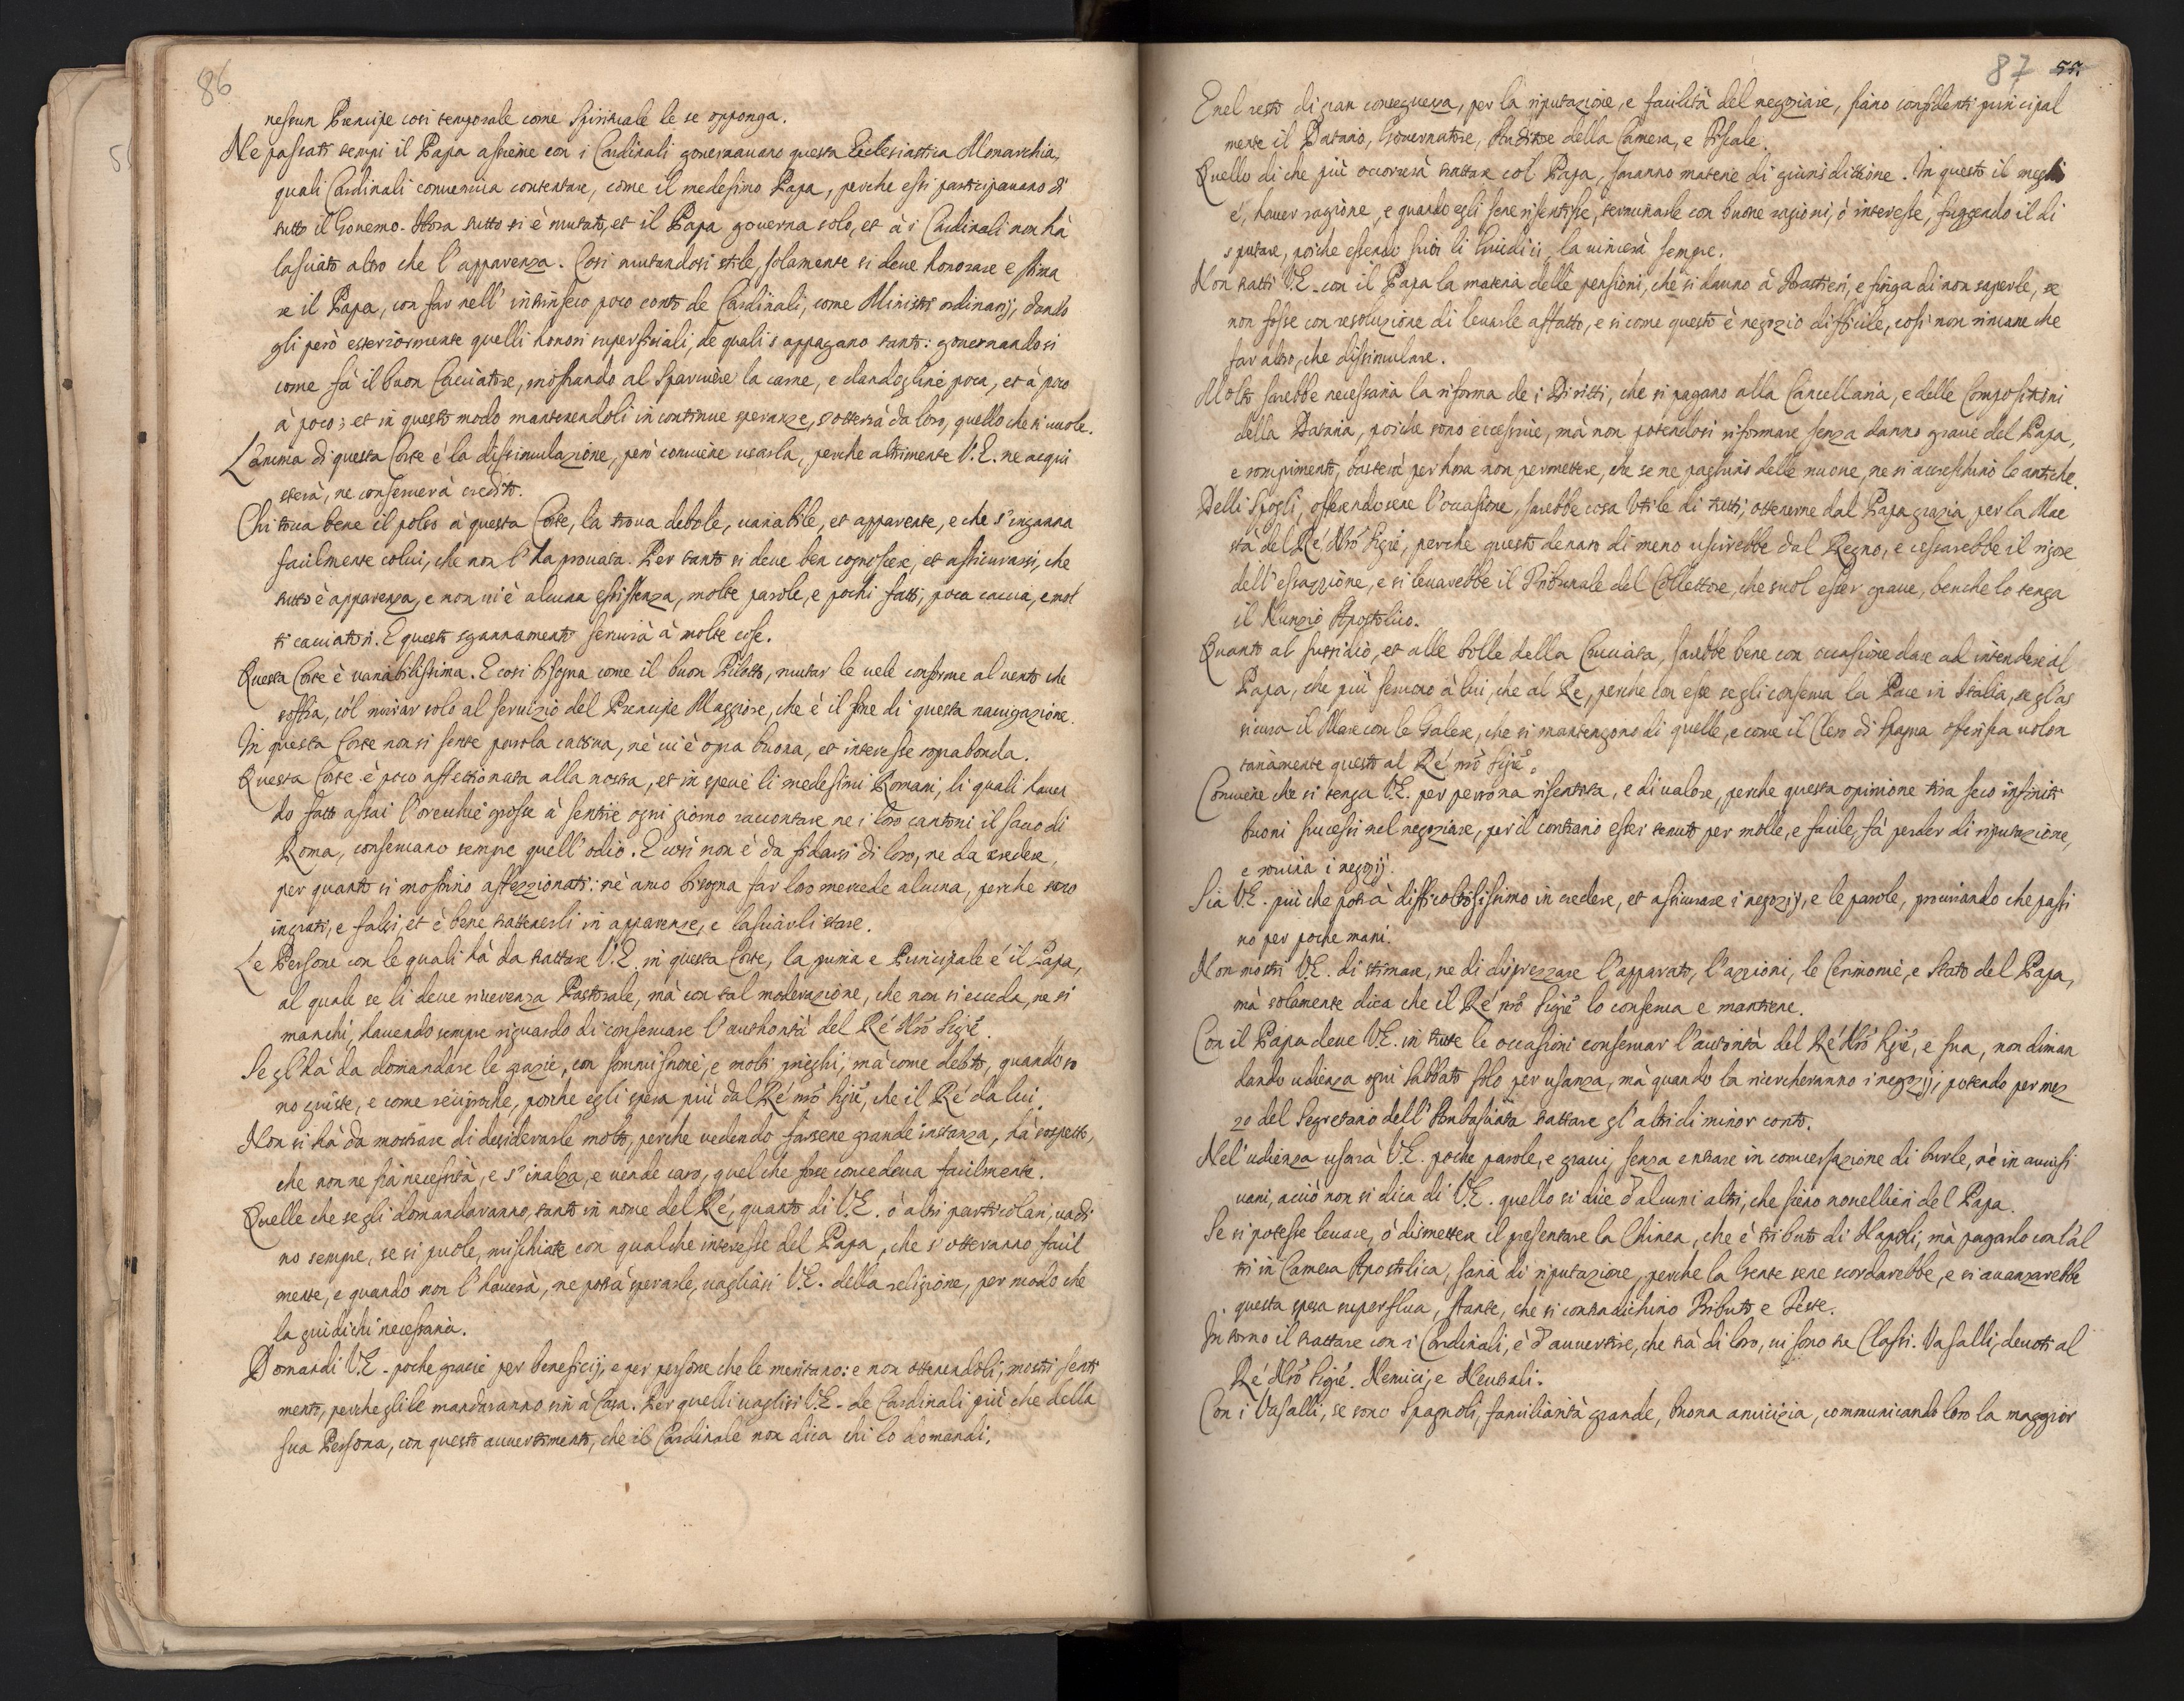 86
nessun Prencipe così temporale come Spirituale le se opponga.
Ne passati tempi il Papa assieme con i Cardinali gouernauano questa Ecclesiastica Monarchia,
quali Cardinali conueniua contentare, come il medesimo Papa, perche essi participauano di
tutto il Gouerno. Hora tutto si è mutato, et il Papa gouerna solo, et à i Cardinali non hà
lasciato altro che l'apparenza. Così mutandosi stile, solamente si deue honorare e stima
re il Papa, con far nell'intrinseco poco conto de Cardinali, come Ministri ordinarij, dando
gli però esteriormente quelli honori superficiali, de quali s'appagano tanto: gouernandosi
come fà il buon Cacciatore, mostrando al Sparuiere la carne, e dandogline poca, et à poco
à poco; et in questo modo mantenendoli in continue speranze, s'otterrà da loro, quello che si uuole.
L'anima di questa Corte è la dissimulazione, però conuiene usarla, perche altrimente V.E. ne acqui
sterà, ne conseruerà credito.
Chi troua bene il polso à questa Corte, la troua debole, uariabile, et apparente, e che s'inganna
facilmente colui, che non l'ha prouata. Per tanto si deue ben cognoscere, et assicurarsi, che
tutto è apparenza, e non ui è alcuna esistenza, molte parole, e pochi fatti, poca caccia, e mol
ti cacciatori. E questo sgannamento seruirà à molte cose.
Questa Corte è uariabilissima. E così bisogna come il buon Piloto, mutar le uele conforme al uento che
soffia, co'l mirar solo al seruizio del Prencipe Maggiore, che è il fine di questa nauigazione.
In questa Corte non si sente parola cattiua, nè ui è opra buona, et interesse soprabonda.
Questa Corte è poco affettionata alla nostra, et in specie li medesimi Romani, li quali hauen
do fatto assai l'orecchie grosse à sentire ogni giorno raccontare ne i loro cantoni il sacco di
Roma, conseruano sempre quell'odio. E così non è da fidarsi di loro, ne da credere,
per quanto si mostrino affezzionati: nè anco bisogna far loro mercede alcuna, perche sono
ingrati, e falsi, et è bene trattenerli in apparenze, e lasciarli stare.
Le Persone con le quali hà da trattare V.E. in questa Corte, la prima e Principale é il Papa,
al quale se li deue riuerenza Pastorale, mà con tal moderazione, che non si ecceda, ne si
manchi, hauendo sempre riguardo di conseruare l'authorità del Ré Nro Sigre.
Se gl'hà da domandare le grazie, con sommissione, e molti prieghi, mà come debito, quando so
no giuste, e come reciproche, poiche egli spera più dal Ré nro Sigre, che il Ré da lui.
Non si hà da mostrare di desiderarle molto, perche uedendo farsene grande instanza, hà sospetto,
che non ne sia necessità, e s'inalza, e uende caro, quel che forse concedeua facilmente.
Quelle che se gli domandaranno, tanto in nome del Ré, quanto di V.E. ò altri particolari, uadi
no sempre, se si puole, mischiate con qualche interesse del Papa, che s'otteranno facil
mente, e quando non l'hauerà, ne potrà sperarle, uagliasi V.E. della religione, per modo che
la giudichi necessaria.
Domandi V.E. poche gracie per beneficij, e per persone che le meritano: e non ottenendoli, mostri senti
mento, perche glile mandaranno sin à Casa. Per quelli uaglisi V.E. de Cardinali più che della
sua Persona, con questo auuertimento, che il Cardinale non dica chi lo domandi.
87 55.
E nel resto di gran conseguenza, per la riputazione, e facilità del negoziare, siano confidenti principal
mente il Datario, Gouernatore, Auditore della Camera, e Fiscale.
Quello di che più occorrerà trattare col Papa, saranno materie di giurisdittione. In questo il meglio
é, hauer ragione, e quando egli sene risentisse, terminarle con buone ragioni, ò interesse, fuggendo il di
sputare, poiche essendo suoi li Giudicij, la uincerà sempre.
Non tratti V.E. con il Papa la materia delle pensioni, che si danno à Prattieri, e finga di non saperle, se
non fosse con resoluzione di leuarle affatto, e si come questo è negozio difficile, così non rimane che
far altro, che dissimulare.
Molto sarebbe necessaria la riforma de i Diritti, che si pagano alla Cancellaria, e delle Compositioni
della Dataria, poiche sono eccessiue, mà non potendosi riformare senza danno graue del Papa,
e rompimento, basterà per hora non permettere, che se ne paghino delle nuoue, ne si accreschino le antiche.
Delli Spogli, offerendosene l'occasione, sarebbe cosa Vtile di tutti, ottenerne dal Papa grazia per la Mae
stà del Re Nro Sigre, perche questo denaro di meno uscirebbe dal Regno, e cessarebbe il rigore
dell'esazzione, e si leuarebbe il Tribunale del Collettore, che suol esser graue, benche lo tenga
il Nunzio Apostolico.
Quanto al sussidio, et alle bolle della Cruciata, sarebbe bene con occasione dare ad intendere al
Papa, che più seruono à lui, che al Re, perche con esse se gli conserua la Pace in Italia, se gl'as
sicura il Mare con le Galere, che si mantengono di quelle, e come il Clero di Spagna offerisca uolon
tariamente questo al Ré nro Sigre.
Conuiene che si tenga V.E. per persona risentita, e di ualore, perche questa opinione tira seco infiniti
buoni successi nel negoziare, per il contrario esser tenuto per molle, e facile, fà perder di riputazione,
e rouina i negozij.
Sia V.E. più che potrà difficoltosissimo in credere, et assicurare i negozij, e le parole, procurando che passi
no per poche mani.
Non mostri V.E. di stimare, ne di disprezzare l'apparato, l'azzioni, le Cerimonie, e Stato del Papa,
mà solamente dica che il Ré nro Sigre lo conserua e mantiene.
Con il Papa deue V.E. in tutte le occasioni conseruar l'autorità del Ré Nro Sigre, e sua, non diman
dando udienza ogni Sabbato solo per usanza, mà quando la ricercheranno i negozij, potendo per mez
zo del Segretario dell'Ambasciata trattare gl'altri di minor conto.
Nel'udienza usarà V.E. poche parole, e graui, senza entrare in conuersazione di burle, nè in auuisi
uani, acciò non si dica di V.E. quello si dice d'alcuni altri, che sieno nouellieri del Papa.
Se si potesse leuare, ò dismetter il presentare la Chinea, che è tributo di Napoli, mà pagarlo con l'al
tri in Camera Apostolica, saria di riputazione, perche la Gente sene scordarebbe, e si auanzarebbe
questa spesa superflua, stante, che si contradichino Tributo e Feste.
Intorno il trattare con i Cardinali, è d'auuertire, che trà di loro, ui sono tre Classi. Vasalli, deuoti al
Ré Nro Sigre. Nemici, e Neutrali.
Con i Vasalli, se sono Spagnoli, familiarità grande, buona amicizia, communicando loro la maggior